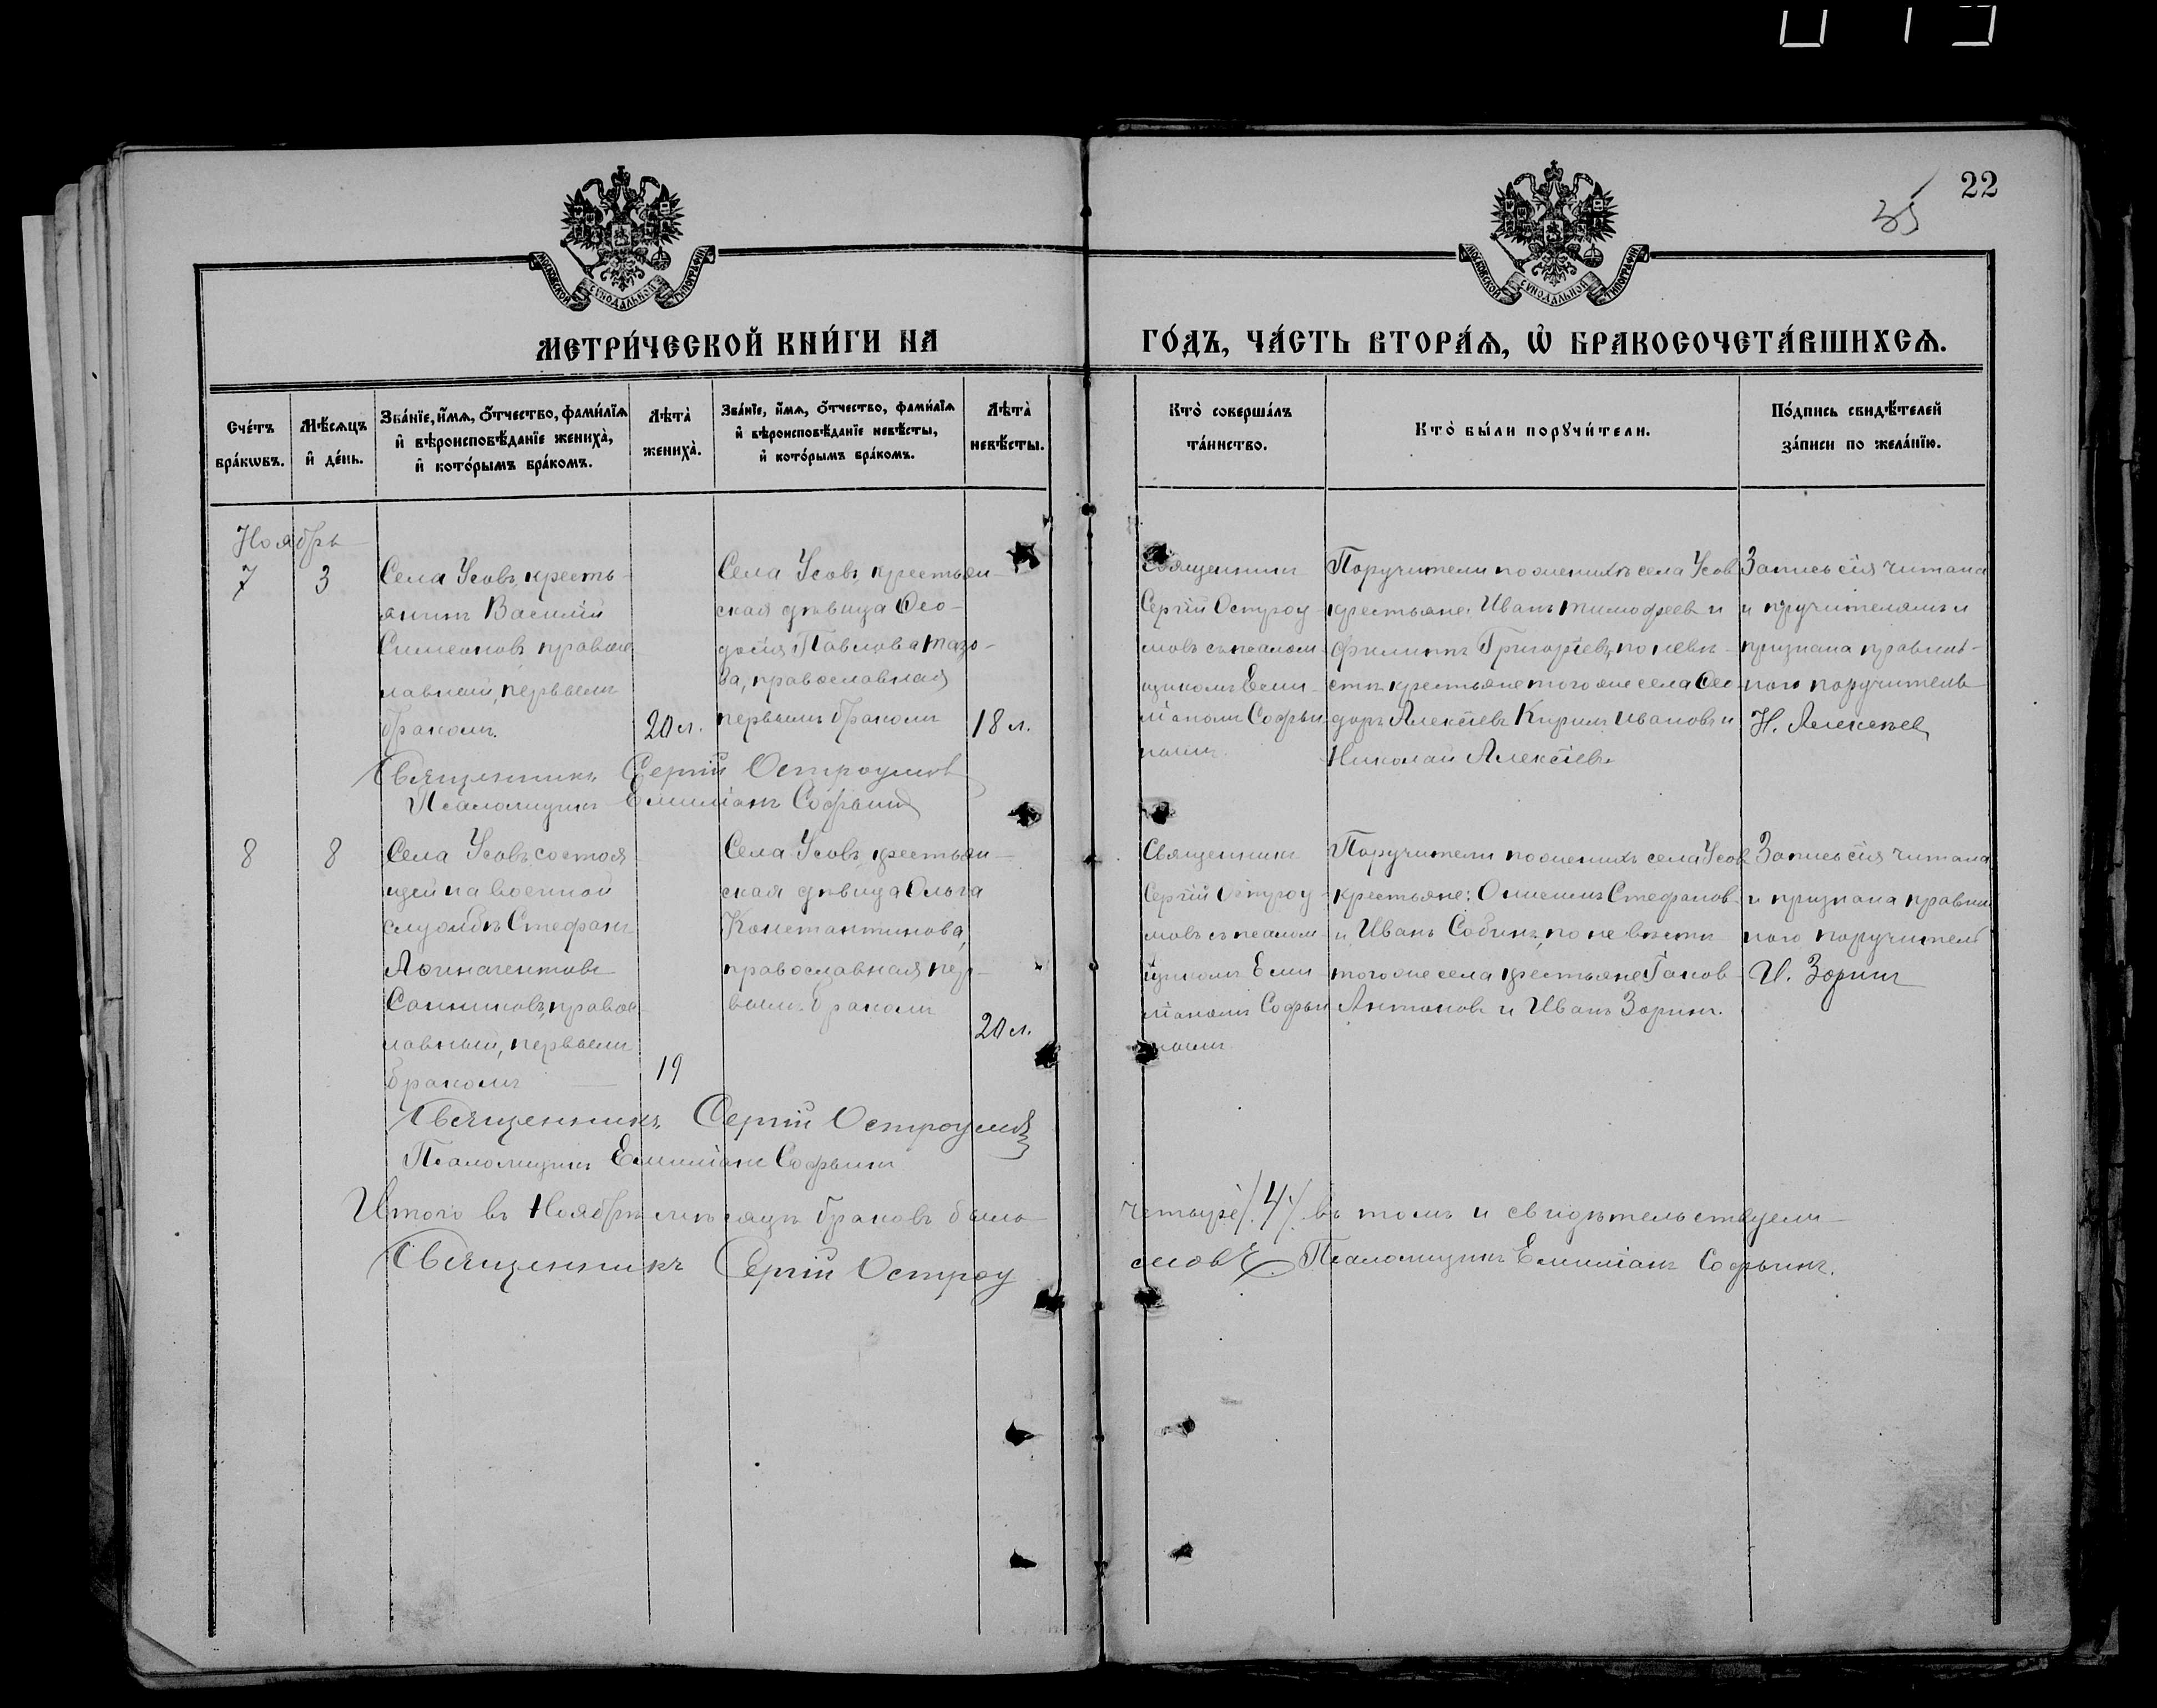 22
35
МОСКОВСКОЙ СѴНОДАЛЬНОЙ ТИПОГРАФІИ
МОСКОВСКОЙ СѴНОДАЛЬНОЙ ТИПОГРАФІИ
МЕТРИ́ЧЕСКОЙ КНИ́ГИ НА
ГО́ДЪ, ЧА́СТЬ ВТОРА́Ѧ, Ѡ҆ БРАКОСОЧЕТА́ВШИХСѦ.
Сче́тъ
бра́кѡвъ.
Мѣ́сѧцъ
и҆ де́нь.
Зва́нїе, и҆́мѧ, о҆́тчество, фами́лїѧ
и҆ вѣроисповѣ́данїе жениха̀,
и҆ кото́рымъ бра́комъ.
Лѣта̀
жениха̀.
Зва́нїе, и҆́мѧ, о҆́тчество, фами́лїѧ
и҆ вѣроисповѣ́данїе невѣ́сты,
и҆ кото́рымъ бра́комъ.
Лѣта̀
невѣ́сты.
Кто̀ соверша́лъ
та́инство.
Кто̀ бы́ли порꙋчи́тели.
По́дпись свидѣ́телей
за́писи по жела́нїю.
Ноябрь
7
3
Села Усовъ, кресть-
янинъ Василій
Симеоновъ, правос-
лавный, первымъ
бракомъ.
20 л.
Села Усовъ, крестьян-
ская дѣвица Ѳео-
досія Павлова
православная
первымъ бракомъ
18 л.
Священникъ
Сергій Остроу-
мовъ съ псалом-
щикомъ Еми-
ліаномъ Софьи-
нымъ
Поручители по женихѣ села Усовъ
крестьяне: Иванъ Тимофеевъ и
Филиппъ Григоріевъ, по невѣ-
стѣ крестьяне того же села Ѳео-
доръ Алексіевъ Кирилъ Ивановъ и
Николай Алексіевъ
Запись сія читана
и пручителямъ и
признана правиль-
ною поручитель
Н. Алексѣев
Священникъ Сергій Остроумов
Псаломщикъ Емиліанъ Софьинъ
8
8
Села Усовъ, состоя-
щій на военной
службѣ Стефанъ
Санниковъ, правос-
лавный, первымъ
бракомъ
19
Села Усовъ, крестьян-
ская дѣвица Ольга
Константинова,
православная пер-
вымъ бракомъ
20 л.
Священникъ
Сергій Остроу-
мовъ съ псалом-
щикомъ Еми-
ліаномъ Софьи-
нымъ
Поручители по женихѣ села Усовъ
крестьяне: Онисимъ Стефановъ
и Иванъ Собинъ, по невѣсти
того же села крестьяне Іаков
Антоновъ и Иванъ Зоринъ.
Запись сія читана
и признана правиль
ною поручитель
И. Зоринъ
Священникъ Сергій Остроумовъ
Псаломщикъ Емиліанъ Софьинъ
Итого въ Ноябрѣ мѣсяцѣ браковъ было четыре /4/. въ томъ и свидѣтельствуемъ
Священникъ Сергій Остроумовъ Псаломщикъ Емиліанъ Софьинъ.